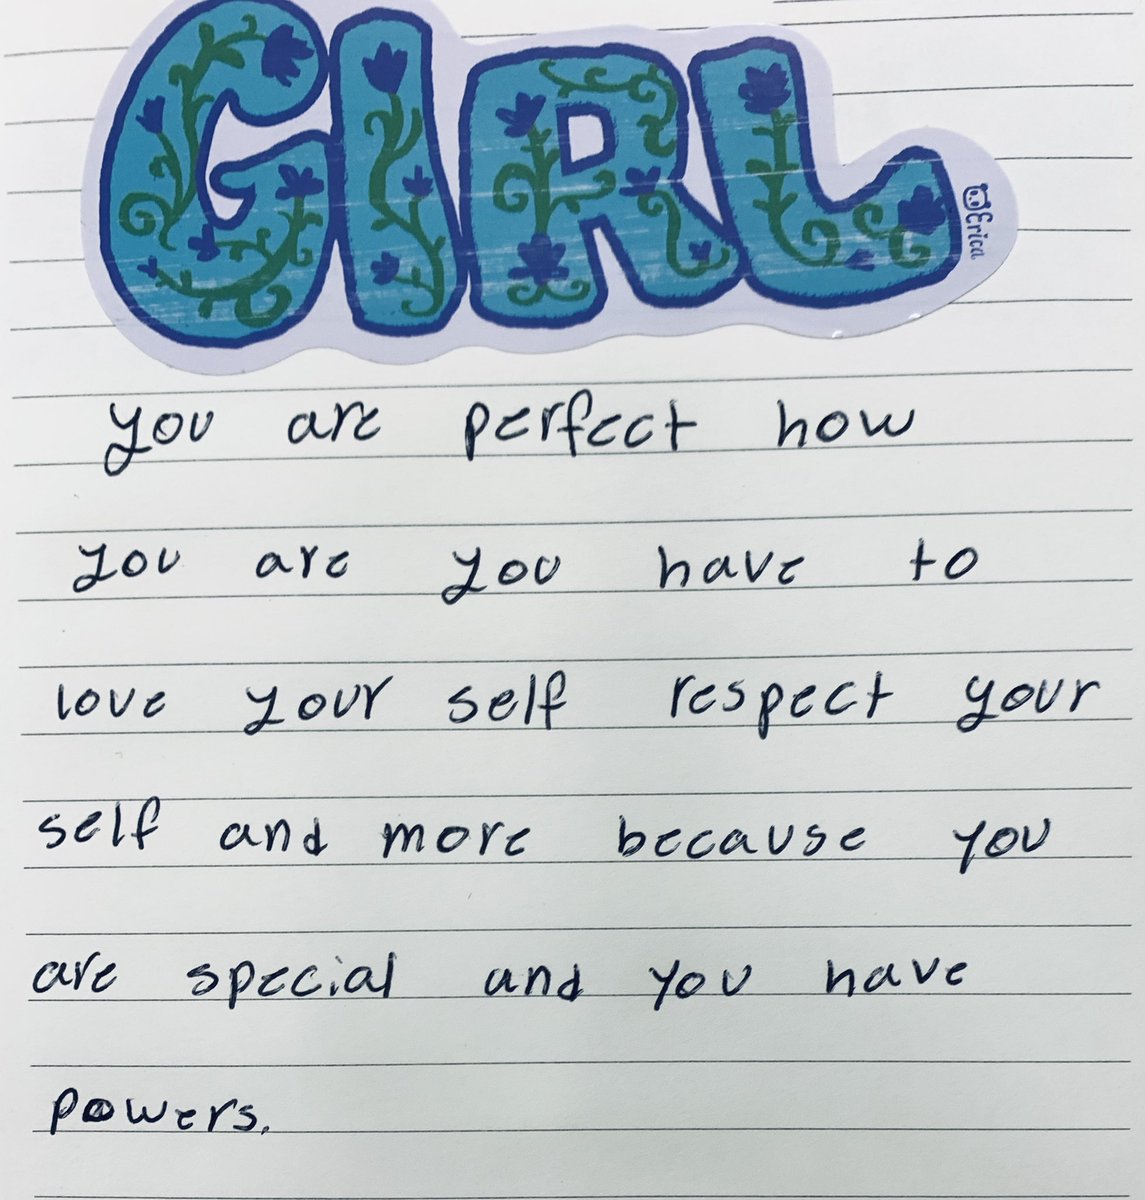 GIRL
Erica
you are perfect how
you are you have to
love your self respect your
self and more because you
are special and you have
powers.